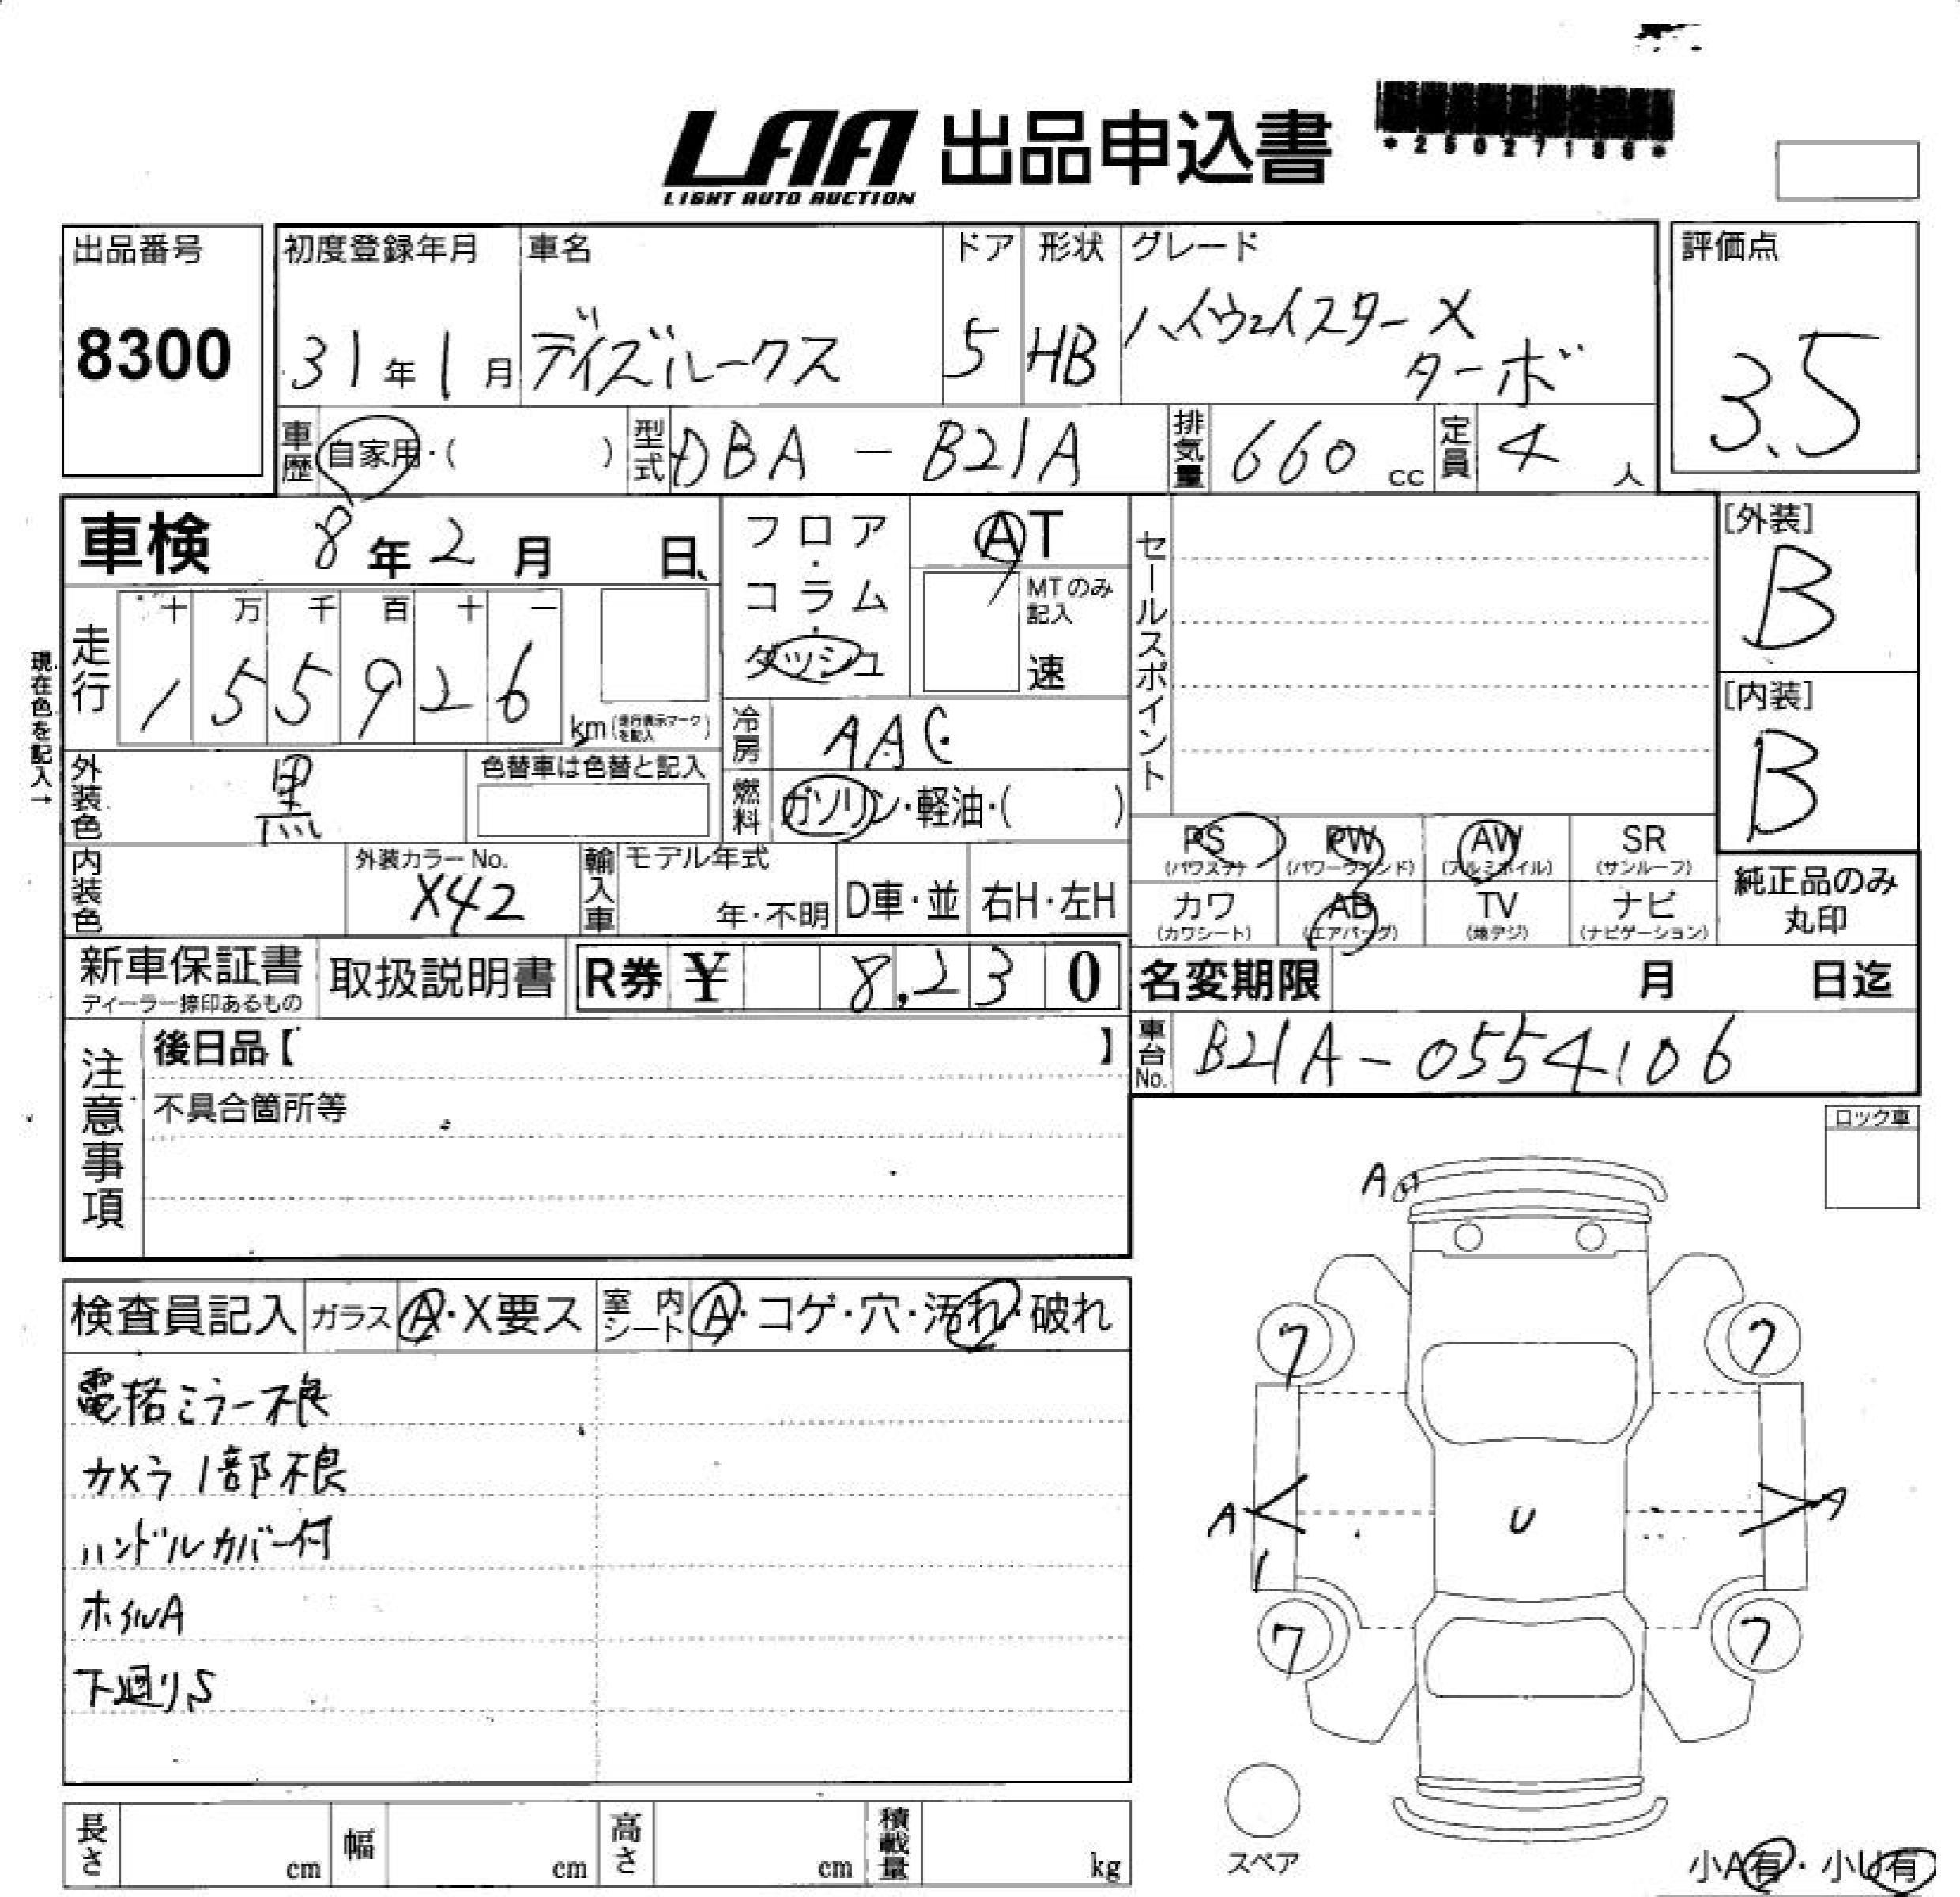 LAA 出品申込書
LIGHT AUTO AUCTION
出品番号
8300
初度登録年月
31年1月
車名
デイズルークス
ドア
5
形状
HB
グレード
ハイウェイスターX
ターボ
評価点
3.5
車歴
自家用・( )
型式
DBA - B21A
排気量
660 cc
定員
4 人
車検 8年2月 日
フロア・コラム・ダッシュ
AT
MTのみ記入
速
セールスポイント
[外装]
B
現在色を記入→
走行
十 万 千 百 十 一
1 5 5 9 2 6 km (走行表示マークを記入)
冷房
AAC
[内装]
B
外装色
黒
色替車は色替と記入
燃料
ガソリン・軽油・( )
内装色
外装カラーNo.
X42
輸入車
モデル年式
年・不明
D車・並
右H・左H
PS (パワステ)
PW (パワーウインド)
AW (アルミホイル)
SR (サンルーフ)
カワ (カワシート)
AB (エアバッグ)
TV (地デジ)
ナビ (ナビゲーション)
純正品のみ
丸印
新車保証書
ディーラー捺印あるもの
取扱説明書
R券 ¥ 8,230
名変期限 月 日迄
注意事項
後日品【 】
不具合箇所等
車台No.
B21A-0554106
ロック車
A
検査員記入
ガラス A・X要ス
室内シート A・コゲ・穴・汚れ・破れ
電格ミラー不良
カメラ1部不良
ハンドルカバー付
ホイルA
下廻りS
7 7
A U A
1
7 7
スペア
長さ cm
幅 cm
高さ cm
積載量 kg
小A有・小U有